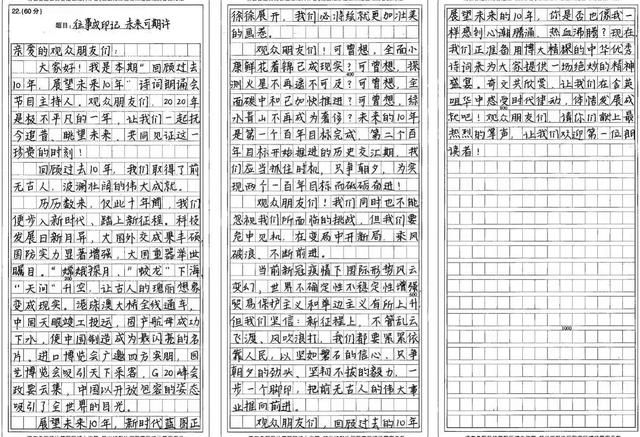 22.(60分)
题目：往事成印记 未来可期许
亲爱的观众朋友们：
大家好！我是本期“回顾过去
10年，展望未来10年”诗词朗诵会
节目主持人。观众朋友们，2020年
是极不平凡的一年，让我们一起抚
今追昔，眺望未来，共同见证这一
珍贵的时刻！
回顾过去10年，我们取得了前
无古人，波澜壮阔的伟大成就。
历历数来，仅此十年间，我们
便步入新时代、踏上新征程，科技
发展日新月异，大国外交成果丰硕
国防实力显著增强，大国重器举世
瞩目。“嫦娥探月，“蛟龙”下海，
“天问”升空，让古人的瑰丽想象
变成现实。港珠澳大桥全线通车，
中国天眼竣工投运，国产航母成功
下水，使中国制造成为最闪亮的名
片。进口博览会广邀四方宾朋，园
艺博览会吸引天下来客，G20峰会
政要云集，中国以开放包容的姿态
吸引了全世界的目光。
展望未来10年，新时代蓝图正
徐徐展开，我们必将绘就更加壮美
的画卷。
观众朋友们！可曾想，全面小
康鲜花着锦已成现实？可曾想，探
测火星不再遥不可及？可曾想，全
面碳中和已加快推进？可曾想，绿
水青山不再成为奢侈？未来的10年
是第一个百年目标完成，第二个百
年目标开始推进的历史交汇期，我
们应当抓住时机，只争朝夕，为实
现两个一百年目标而砥砺奋进！
观众朋友们！我们同时也不能
忽视我们所面临的挑战，但我们要
危中见机，在变局中开新局，乘风
破浪、不断前进。
当前新冠疫情下国际形势风云
变幻，世界不确定性不稳定性增强
贸易保护主义和单边主义有所上升
但我们坚信：新征程上，不管乱云
飞渡、风吹浪打，我们都要紧紧依
靠人民，以坚如磐石的信心，只争
朝夕的劲头、坚韧不拔的毅力，一
步一个脚印，把前无古人的伟大事
业推向前进。
观众朋友们，回顾过去的10年
展望未来的10年，你是否也像我一
样感到心潮腾涌、热血沸腾？现在，
我们正准备用博大精深的中华优秀
诗词来为大家提供一场绝妙的精神
盛宴。奇文共欣赏，让我们在含英
咀华中感受时代律动，体悟发展成
就吧！观众朋友们，请你们献上最
热烈的掌声，让我们欢迎第一位朗
读者！
1000